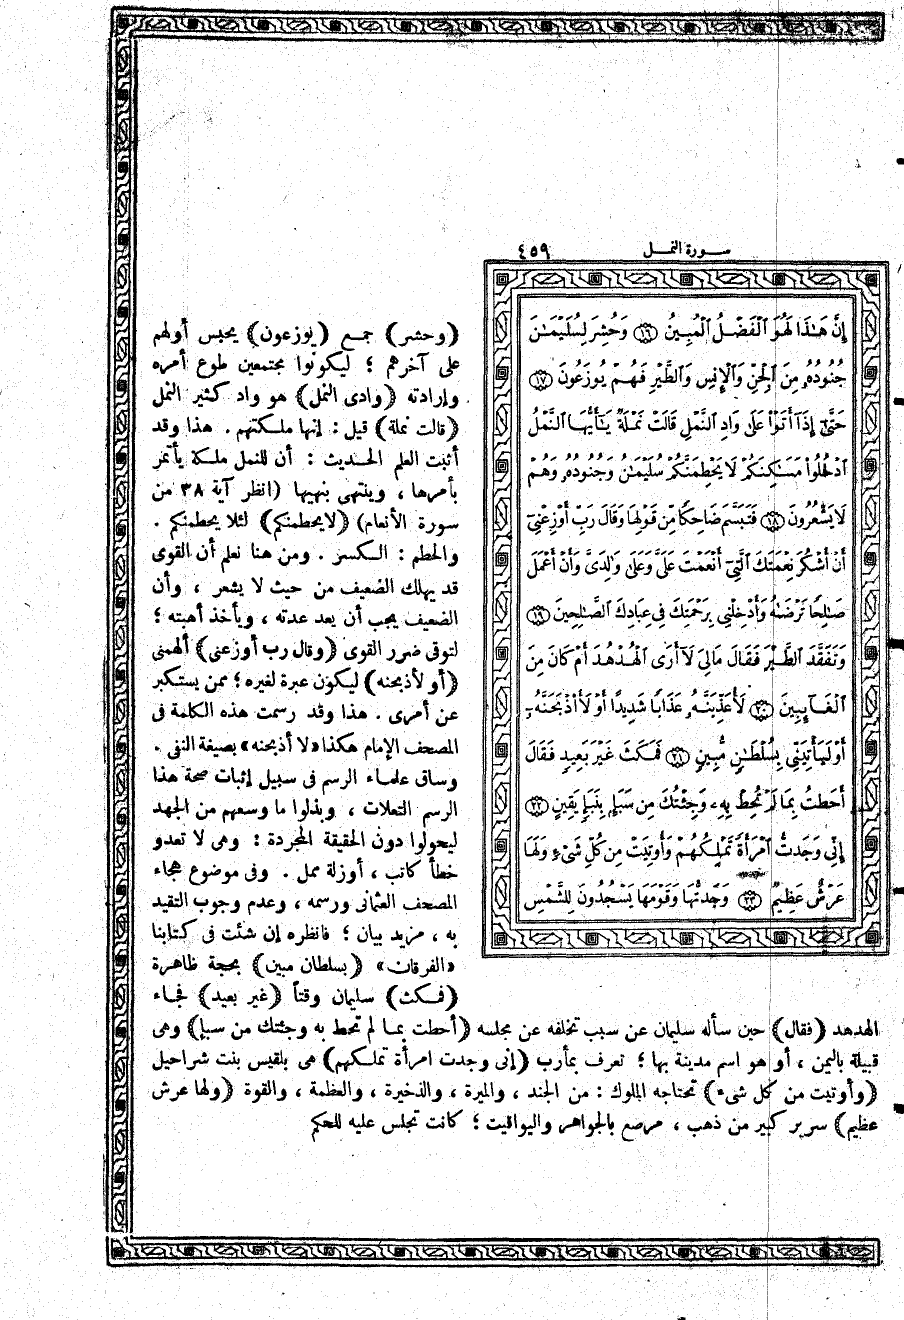 سورة النمل ٤٥٩
إِنَّ هَٰذَا لَهُوَ ٱلْفَضْلُ ٱلْمُبِينُ ١٦ وَحُشِرَ لِسُلَيْمَٰنَ
جُنُودُهُۥ مِنَ ٱلْجِنِّ وَٱلْإِنسِ وَٱلطَّيْرِ فَهُمْ يُوزَعُونَ ١٧
حَتَّىٰٓ إِذَآ أَتَوْا۟ عَلَىٰ وَادِ ٱلنَّمْلِ قَالَتْ نَمْلَةٌ يَٰٓأَيُّهَا ٱلنَّمْلُ
ٱدْخُلُوا۟ مَسَٰكِنَكُمْ لَا يَحْطِمَنَّكُمْ سُلَيْمَٰنُ وَجُنُودُهُۥ وَهُمْ
لَا يَشْعُرُونَ ١٨ فَتَبَسَّمَ ضَاحِكًا مِّن قَوْلِهَا وَقَالَ رَبِّ أَوْزِعْنِىٓ
أَنْ أَشْكُرَ نِعْمَتَكَ ٱلَّتِىٓ أَنْعَمْتَ عَلَىَّ وَعَلَىٰ وَٰلِدَىَّ وَأَنْ أَعْمَلَ
صَٰلِحًا تَرْضَىٰهُ وَأَدْخِلْنِى بِرَحْمَتِكَ فِى عِبَادِكَ ٱلصَّٰلِحِينَ ١٩
وَتَفَقَّدَ ٱلطَّيْرَ فَقَالَ مَالِىَ لَآ أَرَى ٱلْهُدْهُدَ أَمْ كَانَ مِنَ
ٱلْغَآئِبِينَ ٢٠ لَأُعَذِّبَنَّهُۥ عَذَابًا شَدِيدًا أَوْ لَأَا۟ذْبَحَنَّهُۥٓ
أَوْ لَيَأْتِيَنِّى بِسُلْطَٰنٍ مُّبِينٍ ٢١ فَمَكَثَ غَيْرَ بَعِيدٍ فَقَالَ
أَحَطتُ بِمَا لَمْ تُحِطْ بِهِۦ وَجِئْتُكَ مِن سَبَإٍۭ بِنَبَإٍ يَقِينٍ ٢٢
إِنِّى وَجَدتُّ ٱمْرَأَةً تَمْلِكُهُمْ وَأُوتِيَتْ مِن كُلِّ شَىْءٍ وَلَهَا
عَرْشٌ عَظِيمٌ ٢٣ وَجَدتُّهَا وَقَوْمَهَا يَسْجُدُونَ لِلشَّمْسِ
(وحشر) جمع (يوزعون) يحبس أولهم
على آخرهم ؛ ليكونوا مجتمعين طوع أمره
وإرادته (وادى النمل) هو واد كثير النمل
(قالت نملة) قيل : إنها ملكتهم . هذا وقد
أثبت العلم الحديث : أن للنمل ملكة يأتمر
بأمرها ، وينتهى بنهيها (انظر آية ٣٨ من
سورة الأنعام) (لايحطمنكم) لئلا يحطمنكم .
والحطم : الكسر . ومن هنا نعلم أن القوى
قد يهلك الضعيف من حيث لا يشعر ، وأن
الضعيف يجب أن يعد عدته ، ويأخذ أهبته ؛
لتوقى ضرر القوى (وقال رب أوزعنى) ألهمنى
(أو لأذبحنه) ليكون عبرة لغيره ؛ ممن يستكبر
عن أمرى . هذا وقد رسمت هذه الكلمة فى
المصحف الإمام هكذا «لا أذبحنه» بصيغة النفى .
وساق علماء الرسم فى سبيل إثبات صحة هذا
الرسم التعلات ، وبذلوا ما وسعهم من الجهد
ليحولوا دون الحقيقة المجردة : وهى لا تعدو
خطأ كاتب ، أو زلة ممل . وفى موضوع هجاء
المصحف العثمانى ورسمه ، وعدم وجوب التقيد
به ، مزيد بيان ؛ فانظره إن شئت فى كتابنا
«الفرقان» (بسلطان مبين) بحجة ظاهرة
(فمكث) سليمان وقتاً (غير بعيد) فجاء
الهدهد (فقال) حين سأله سليمان عن سبب تخلفه عن مجلسه (أحطت بما لم تحط به وجئتك من سبإ) وهى
قبيلة باليمن ، أو هو اسم مدينة بها ؛ تعرف بمأرب (إنى وجدت امرأة تملكهم) هى بلقيس بنت شراحيل
(وأوتيت من كل شىء) تحتاجه الملوك : من الجند ، والميرة ، والذخيرة ، والعظمة ، والقوة (ولها عرش
عظيم) سرير كبير من ذهب ، مرصع بالجواهر واليواقيت ؛ كانت تجلس عليه للحكم